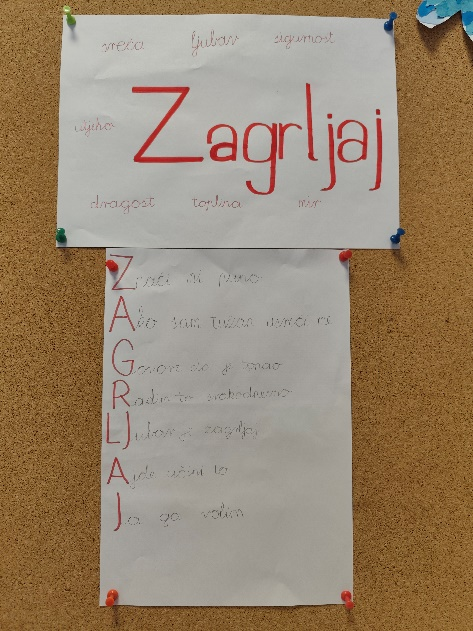 sreća ljubav sigurnost
utjeha
Zagrljaj
dragost toplina mir
Znači mi puno
Ako sam tužan usreći me
Govori da je topao
Radim to svakodnevno
Ljubav je zagrljaj
Ajde učini to
Ja ga volim